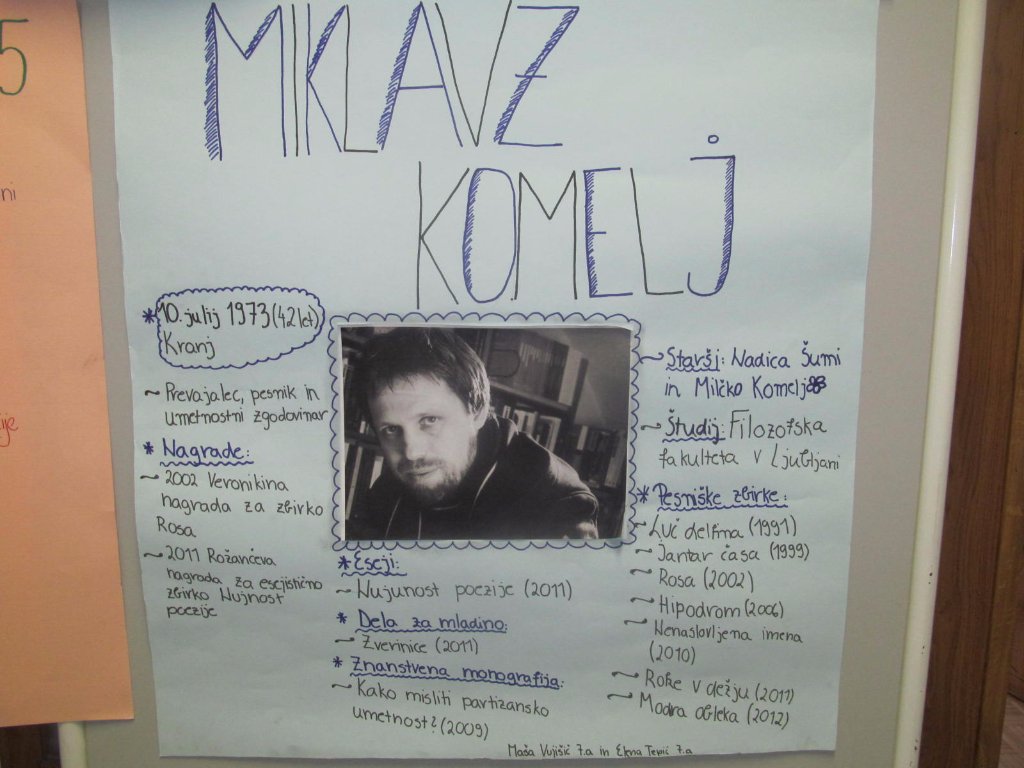 5
ni
je
MIKLAVZ
KOMELJ
* 10. julij 1973 (42 let)
Kranj
~ Prevajalec, pesnik in
umetnostni zgodovinar
* Nagrade:
~ 2002 Veronikina
nagrada za zbirko
Rosa
~ 2011 Rožančeva
nagrada za esejistično
zbirko Nujnost
poezije
* Eseji:
~ Nujunost poezije (2011)
* Dela za mladino:
~ Zverinice (2011)
* Znanstvena monografija:
~ Kako misliti partizansko
umetnost? (2009)
~ Starši: Nadica Šumi
in Milčko Komelj
~ Študij: Filozofska
fakulteta v Ljubljani
* Pesniške zbirke:
~ Luč delfina (1991)
~ Jantar časa (1999)
~ Rosa (2002)
~ Hipodrom (2006)
~ Nenaslovljena imena
(2010)
~ Roke v dežju (2011)
~ Modra obleka (2012)
Maša Vujišić 7.a in Elena Tepić 7.a